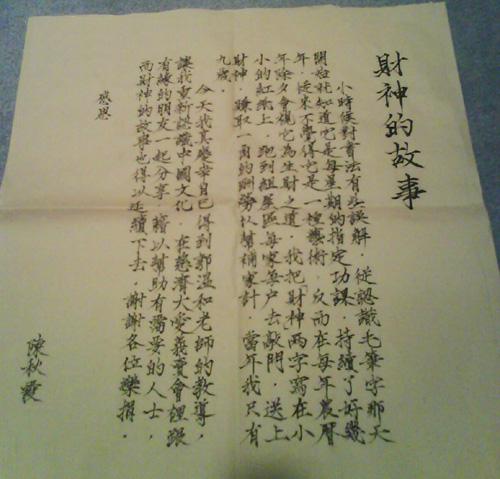 財神的故事
小時候對書法有些誤解，從認識毛筆字那天
開始就知道它是每星期的指定功課，持續了好幾
年，從來不覺得它是一種藝術，反而在每年農曆
年除夕會視它為生財之道，我把「財神」兩字寫在小
小的紅紙上，跑到組屋區每家每户去敲門，送上
財神，賺取一角的酬勞以幫補家計，當年我只有
九歲。
今天我真慶幸自已得到郭溫和老師的教導，
讓我重新認識中國文化，在慈濟大愛義賣會裡跟
有緣的朋友一起分享，藉以幫助有需要的人士，
而財神的故事也得以延續下去，謝謝各位樂捐。
感恩
陳秋霞